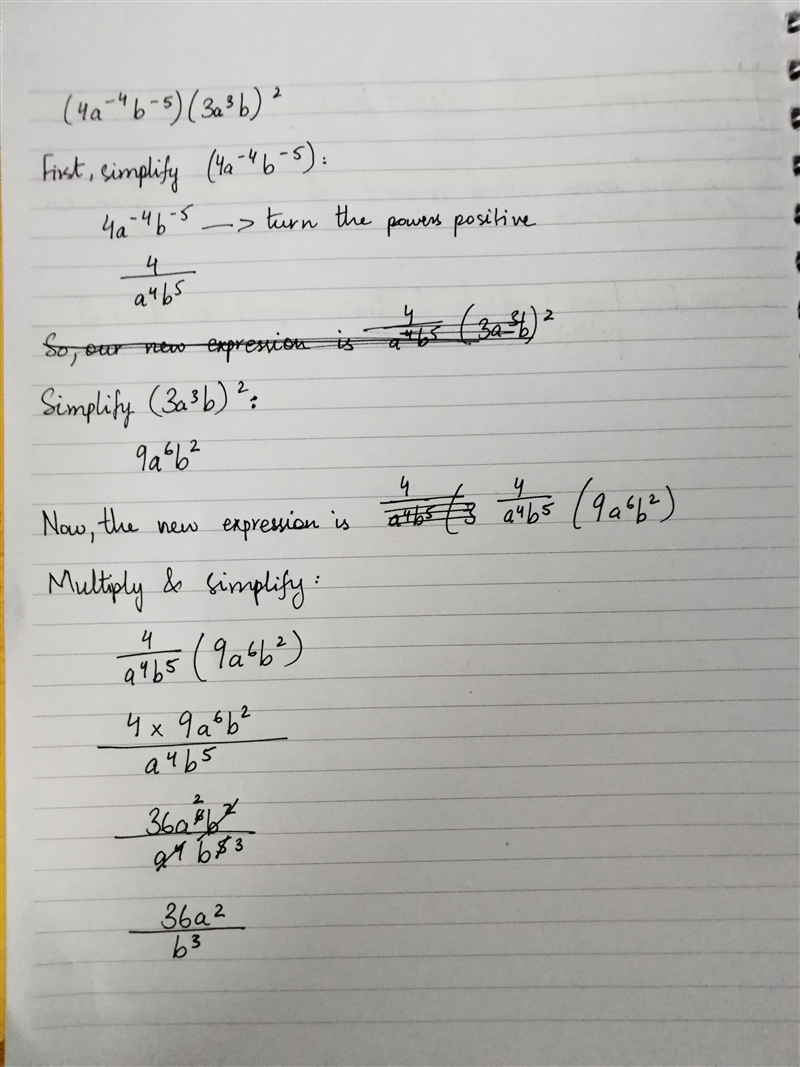 (4a⁻⁴b⁻⁵)(3a³b)²
First, simplify (4a⁻⁴b⁻⁵):
4a⁻⁴b⁻⁵ —> turn the powers positive
4
a⁴b⁵
So, our new expression is 4/a⁴b⁵ (3a³b)²
Simplify (3a³b)²:
9a⁶b²
Now, the new expression is 4/a⁴b⁵ (3 4/a⁴b⁵ (9a⁶b²)
Multiply & simplify:
4/a⁴b⁵ (9a⁶b²)
4 × 9a⁶b²
a⁴b⁵
2
36a⁶b²
a⁴ b⁵ 3
36a²
b³